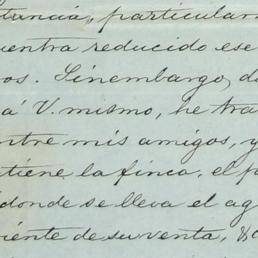 tancia, particular
uentra reducido ese
os. Sinembargo, d
á V. mismo, he tra
ntre mis amigos, y
tiene la finca, el p
donde se lleva el ag
iente de su venta, &a